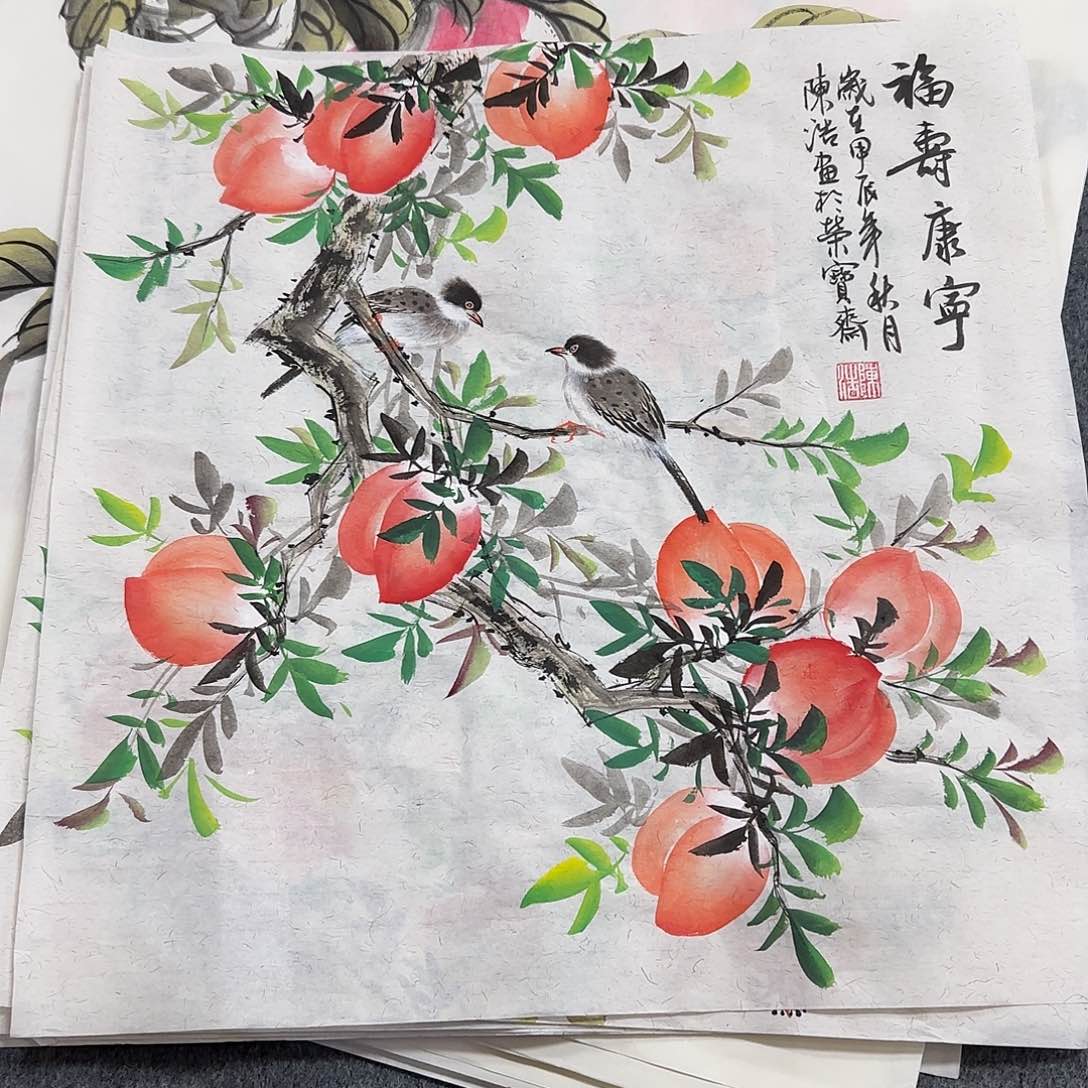 福壽康寧
歲在甲辰年秋月
陳浩畫於榮寶齋
陳浩